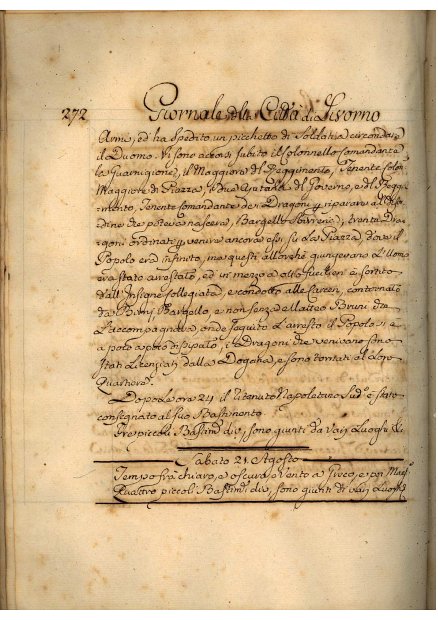 272 Giornale della Città di Livorno
Armi, ed ha spedito un picchetto di Soldati a circondare
il Duomo. Vi sono accorsi subito il Colonnello Comandante
la Guarnigione, il Maggiore del Reggimento, Tenente Colon.
Maggiore di Piazza, i due Ajutanti del Governo, e del Reggi
mento, Tenente Comandante de Dragoni p riparare al disor
dine che poteva nascere, Bargello Sbirreria, trenta Dra
goni ordinati p venire ancora essi su la Piazza, dove il
Popolo era infinito, ma questi allorchè giungevano l'Uomo
era stato arrestato, ed in mezzo a otto Fucilieri è sortito
dall'Insigne Collegiata, e condotto alle Carceri, contornato
da Birri, Bargello, e non senza Matteo Bruni che
l'accompagnava, onde seguito l'arresto il Popolo si è
a poco a poco dissipato, i Dragoni che venivano sono
stati licenziati dalla Dogana, e sono tornati al Loro
Quartiere.
Dopo le ore 24 il ritenuto Napoletano Sud.o è stato
consegnato al suo Bastimento.
Tre piccoli Bastim.ti div. sono giunti da varj Luoghi &.
Sabato 21. Agosto
Tempo frà chiaro, e oscuro, e Vento a Greco, e poi Maes.o
Quattro piccoli Bastim.ti div. sono giunti di varj Luoghi